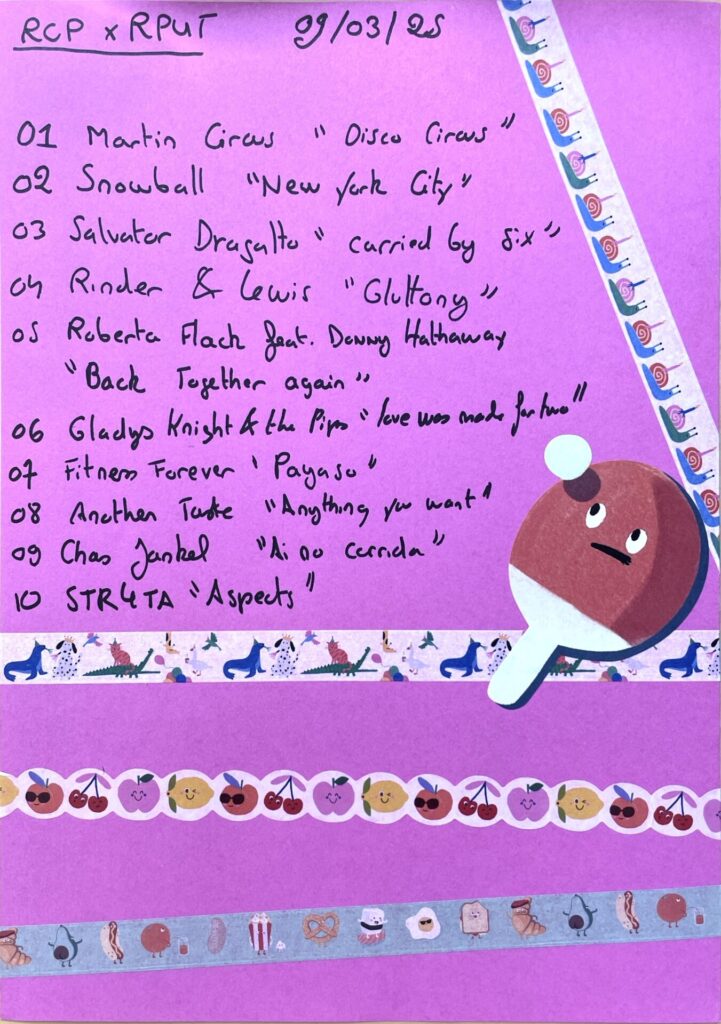 RCP x RPUT 09/03/25
01 Martin Circus "Disco Circus"
02 Snowball "New York City"
03 Salvator Dragatto "carried by six"
04 Rinder & Lewis "Gluttony"
05 Roberta Flack feat. Donny Hathaway
"Back Together again"
06 Gladys Knight & the Pips "love was made for two"
07 Fitness Forever "Payaso"
08 Another Taste "Anything you want"
09 Chas Jankel "Ai no corrida"
10 STR4TA "Aspects"